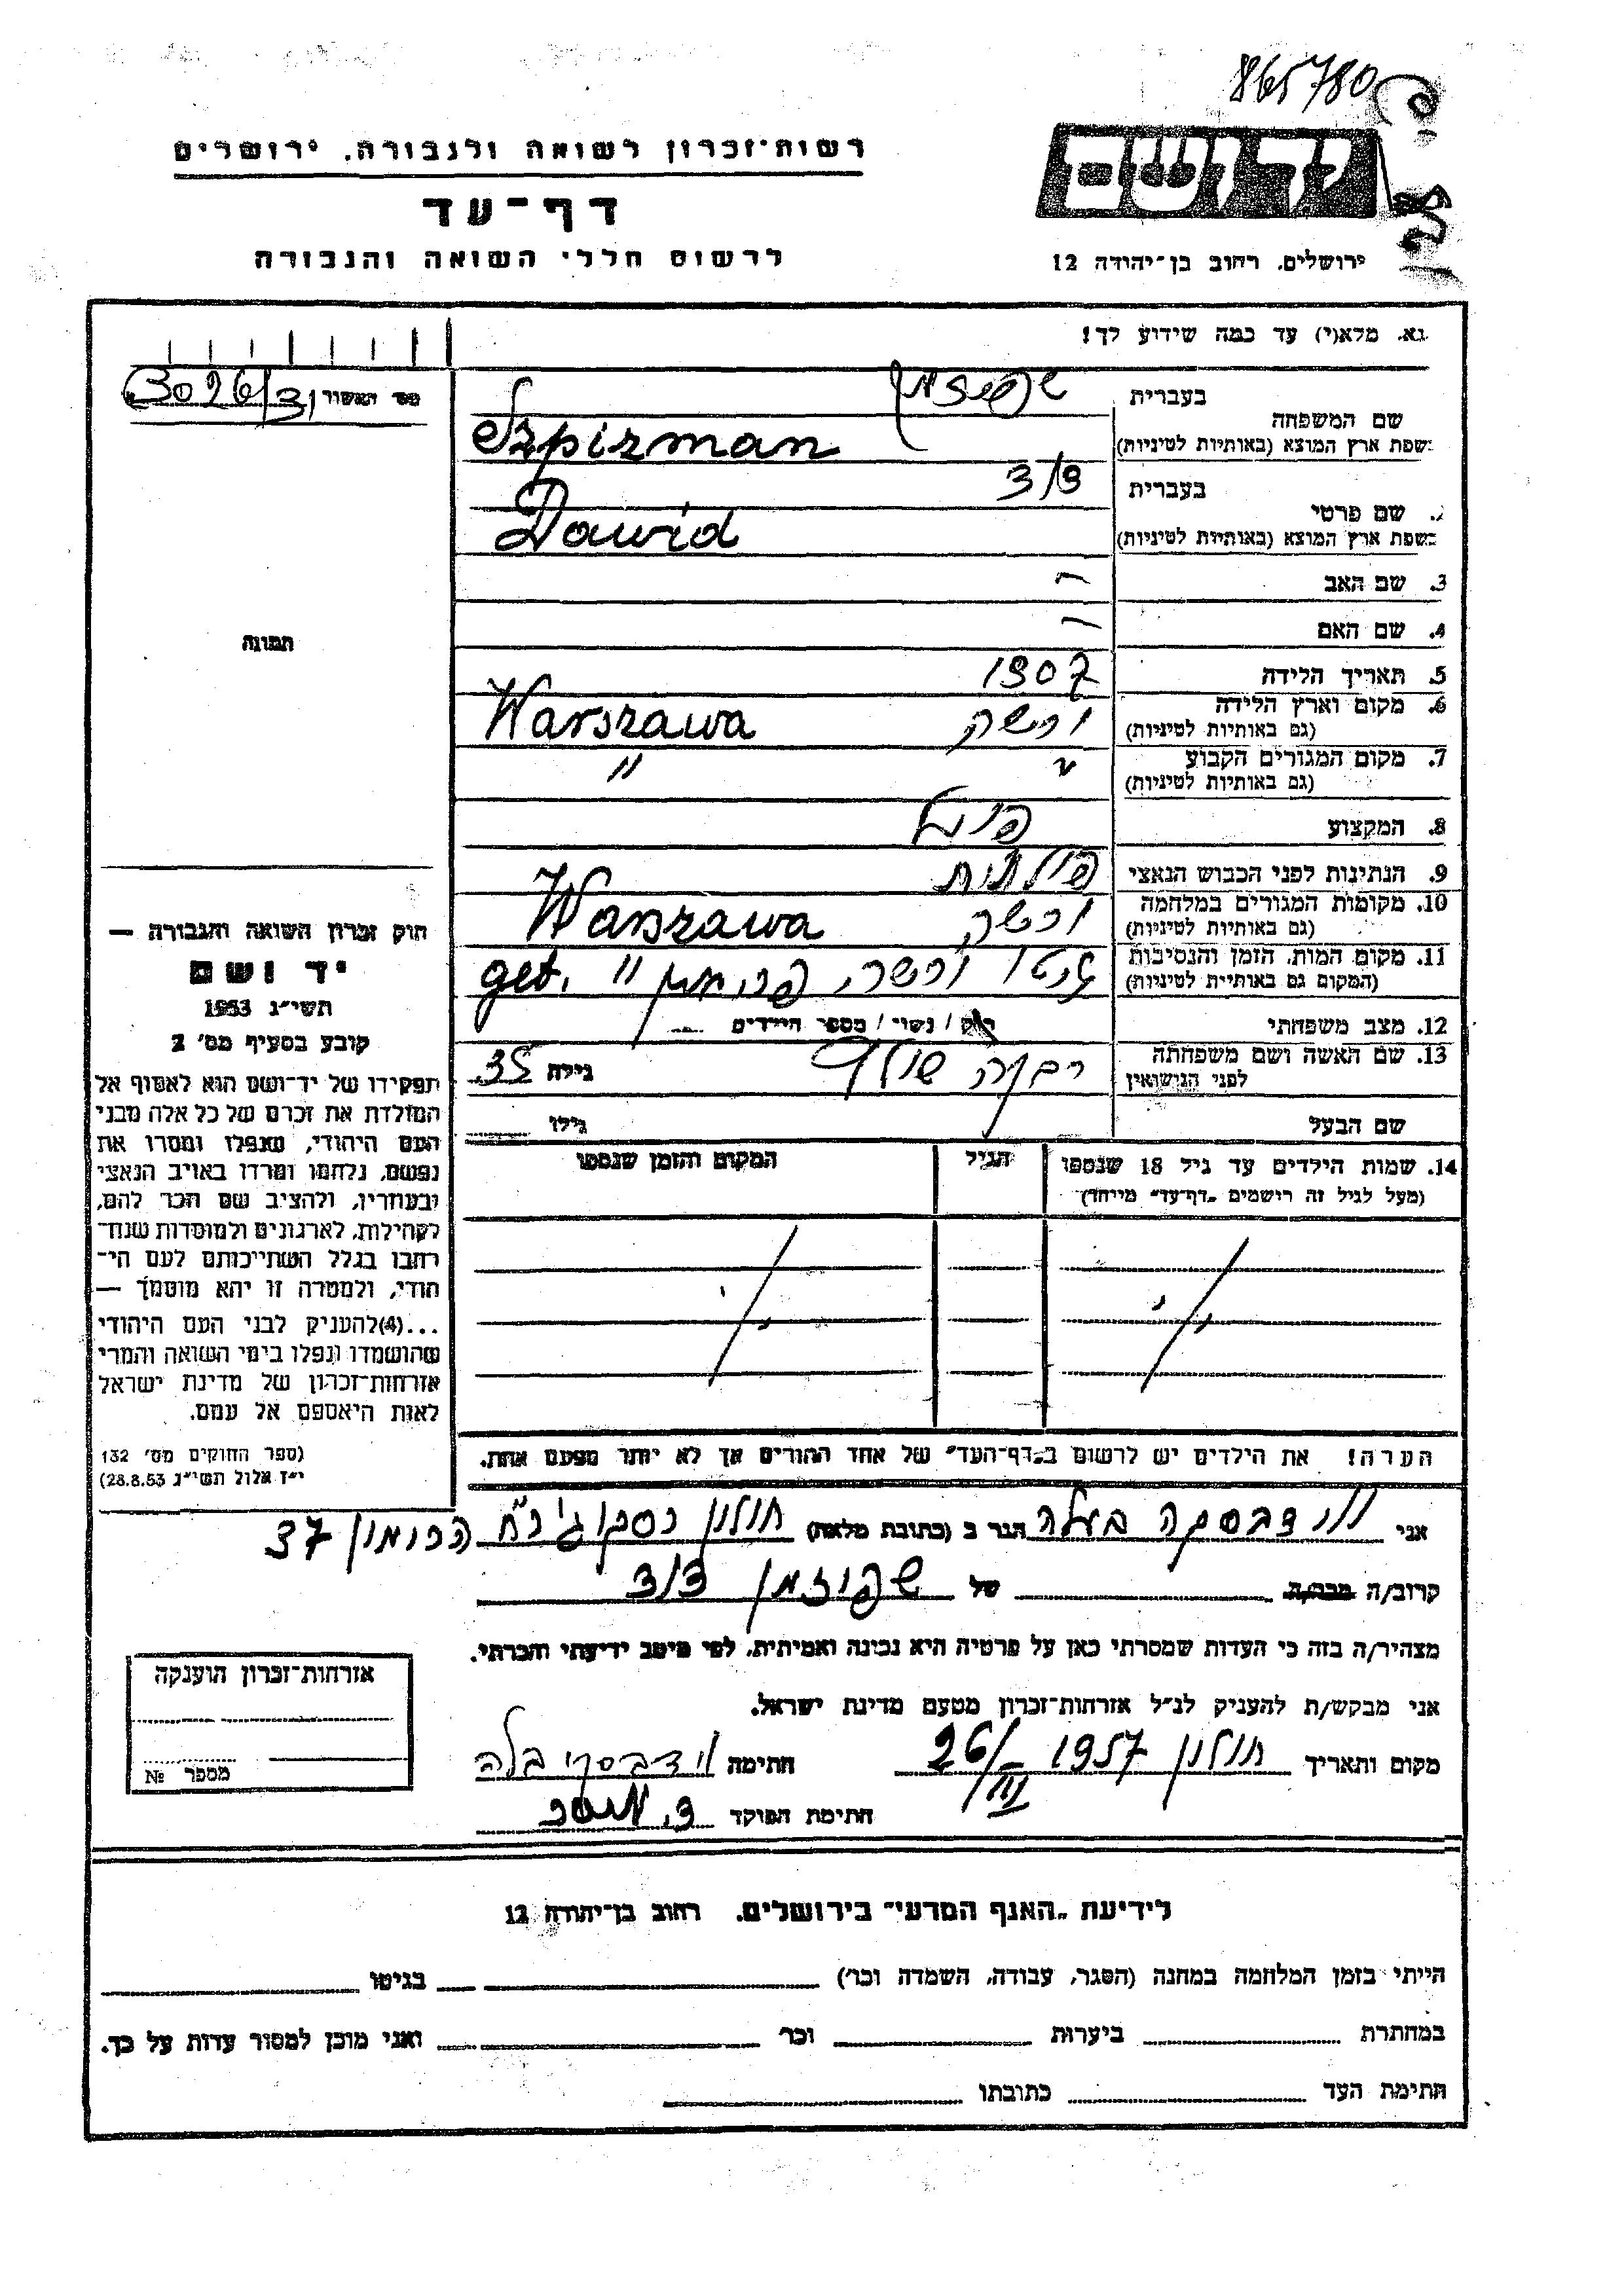 865780
רשות־זכרון לשואה ולגבורה, ירושלים
דף־עד
לרשום חללי השואה והגבורה
יד ושם
ירושלים, רחוב בן־יהודה 12
נא. מלא(י) עד כמה שידוע לך!
בעברית שפיזמן
שם המשפחה
בשפת ארץ המוצא (באותיות לטיניות) Szpizman
בעברית דוד
שם פרטי
בשפת ארץ המוצא (באותיות לטיניות) Dawid
3. שם האב –
4. שם האם –
5. תאריך הלידה 1907
6. מקום וארץ הלידה ורשה Warszawa
(גם באותיות לטיניות)
7. מקום המגורים הקבוע " "
(גם באותיות לטיניות)
8. המקצוע
9. הנתינות לפני הכבוש הנאצי פולנית
10. מקומות המגורים במלחמה ורשה Warszawa
(גם באותיות לטיניות)
11. מקום המות, הזמן והנסיבות גטו ורשה, " get.
(המקום גם באותיות לטיניות)
12. מצב משפחתי רוק / נשוי / מספר הילדים
13. שם האשה ושם משפחתה רבקה גילה 35
לפני הנישואין
שם הבעל גילו
14. שמות הילדים עד גיל 18 שנספו הגיל המקום והזמן שנספו
(מעל לגיל זה רישמים „דף־עד" מייחד)
הערה! את הילדים יש לרשום ב„דף־העד" של אחד ההורים אך לא יותר מפעם אחת.
3026/31 מס' האשור
תמונה
חוק זכרון השואה והגבורה —
יד ושם
תשי״ג 1953
קובע בסעיף מס׳ 2
תפקידו של יד־ושם הוא לאסוף אל
המולדת את זכרם של כל אלה מבני
העם היהודי, שנפלו ומסרו את
נפשם, נלחמו ומרדו באויב הנאצי
ובעוזריו, ולהציב שם וזכר להם,
לקהילות, לארגונים ולמוסדות שנח־
רבו בגלל השתייכותם לעם הי־
הודי, ולמטרה זו יהא מוסמך —
...(4)להעניק לבני העם היהודי
שהושמדו ונפלו בימי השואה והמרי
אזרחות־זכרון של מדינת ישראל
לאות היאספם אל עמם.
(ספר החוקים מס׳ 132
י״ז אלול תשי״ג 28.8.53)
אני הגר ב (כתובת מלאה) חולון 37
קרוב/ה מכר/ה של שפיזמן דוד
מצהיר/ה בזה כי העדות שמסרתי כאן על פרטיה היא נכונה ואמיתית, לפי מיטב ידיעתי והכרתי.
אני מבקש/ת להעניק לנ״ל אזרחות־זכרון מטעם מדינת ישראל.
מקום ותאריך חולון 1957 26/III חתימה
חתימת הפוקד
אזרחות־זכרון הוענקה
מספר №
לידיעת „האגף המדעי" בירושלים, רחוב בן־יהודה 12
הייתי בזמן המלחמה במחנה (הסגר, עבודה, השמדה וכו׳) בגיטו
במחתרת ביערות וכו׳ ואני מוכן למסור עדות על כך.
חתימת העד כתובתו